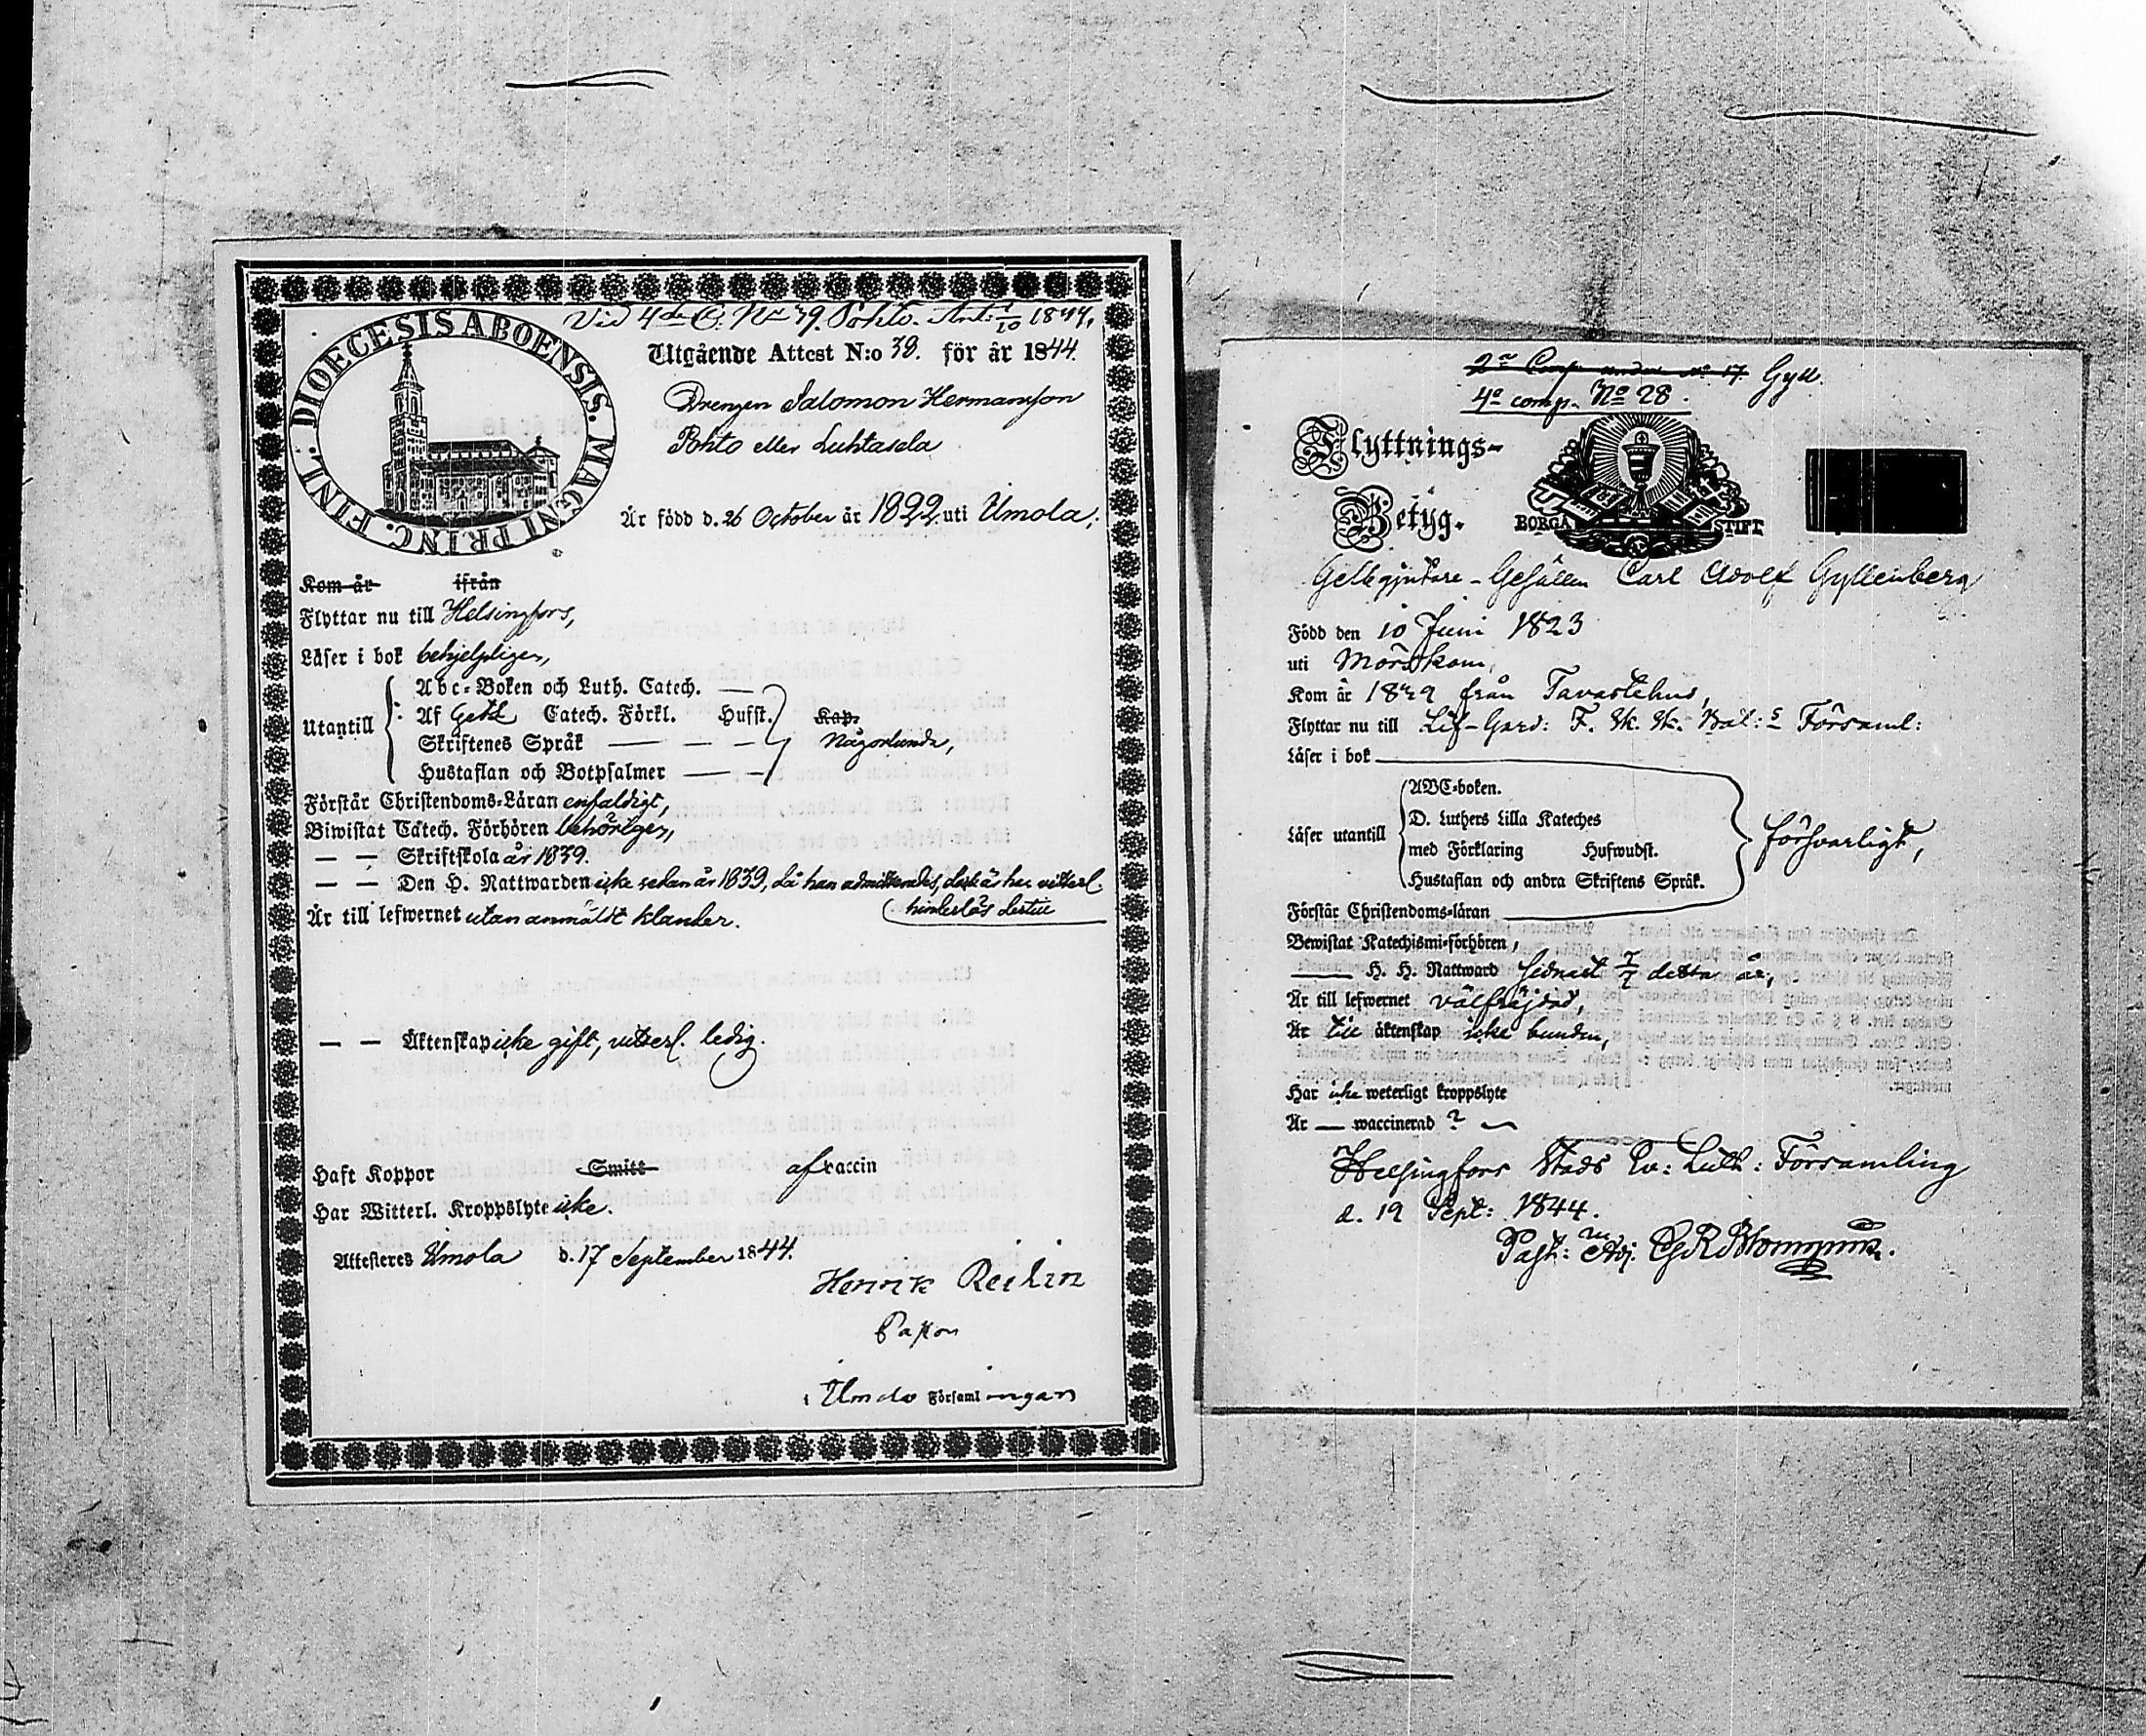 DIOECESIS ABOENSIS. MAGNI PRINC. FINL.
Vid 4de C. No 39. Pohto. Ant: 1/10 1844.
Utgående Attest N:o 38. för år 1844.
Drengen Salomon Hermansson
Pohto eller Luhtasela
Är född d. 26 October år 1822. uti Urnola;
Kom år ifrån
Flyttar nu till Helsingfors,
Läser i bok behjelpligen,
Utantill
Abc-Boken och Luth. Catech. —
Af Catech. Förkl. Hufst. Kap.
Skriftenes Språk — — — Någorlunda,
Hustaflan och Botpsalmer — —
Förstår Christendoms-Läran enfaldigt,
Biwistat Catech. Förhören behörigen,
— — Skriftskola år 1839.
— — Den H. Nattwarden icke sedan år 1839, då han admitterades, dock är han vitterl.
hinderlös dertill
Är till lefwernet utan anmäldt klander.
— — Äktenskap icke gift, vitterl. ledig.
Haft Koppor Smitt af vaccin
Har Witterl. Kroppslyte icke.
Attesteres Urnola d. 17 September 1844.
Henrik
Pastor
i Församl ingen
2a Comp. under No 17. Gyll.
4e comp. No 28.
Flyttnings-
Betyg.
BORGÅ STIFT
Gelbgjutare-Gesällen Carl Adolf Gyllenberg
Född den 10 Juni 1823
uti Mörskom,
Kom år från Tavastehus,
Flyttar nu till Lif-Gard: F. Sk. Sk. Bat:s Församl:
Läser i bok
Läser utantill
ABC-boken.
D. Luthers Lilla Kateches
med Förklaring Hufwudst.
Hustaflan och andra Skriftens Språk.
försvarligt,
Förstår Christendoms-läran
Bewistat Katechismi-förhören,
— H. H. Nattward sednast 7/7 detta år,
Är till lefwernet välfräjdad,
Är till äktenskap icke bunden,
Har icke weterligt kroppslyte
Är — waccinerad ? —
Helsingfors Stads Ev: Luth: Församling
d. 19 Sept: 1844.
Past: Adj.